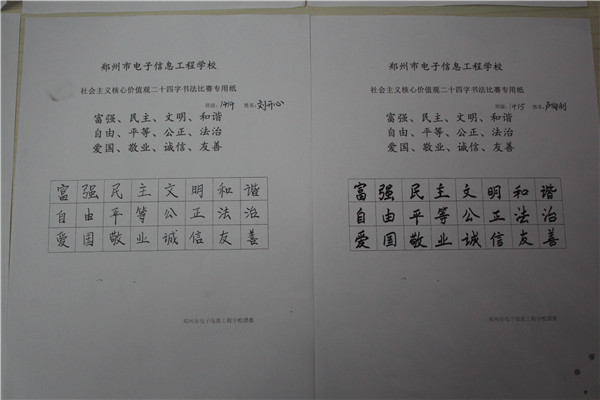 郑州市电子信息工程学校
社会主义核心价值观二十四字书法比赛专用纸
班级: 1414 姓名: 刘开心
富强、民主、文明、和谐
自由、平等、公正、法治
爱国、敬业、诚信、友善
富强民主文明和谐
自由平等公正法治
爱国敬业诚信友善
郑州市电子信息工程学校团委
郑州市电子信息工程学校
社会主义核心价值观二十四字书法比赛专用纸
班级: 1415 姓名:
富强、民主、文明、和谐
自由、平等、公正、法治
爱国、敬业、诚信、友善
富强民主文明和谐
自由平等公正法治
爱国敬业诚信友善
郑州市电子信息工程学校团委